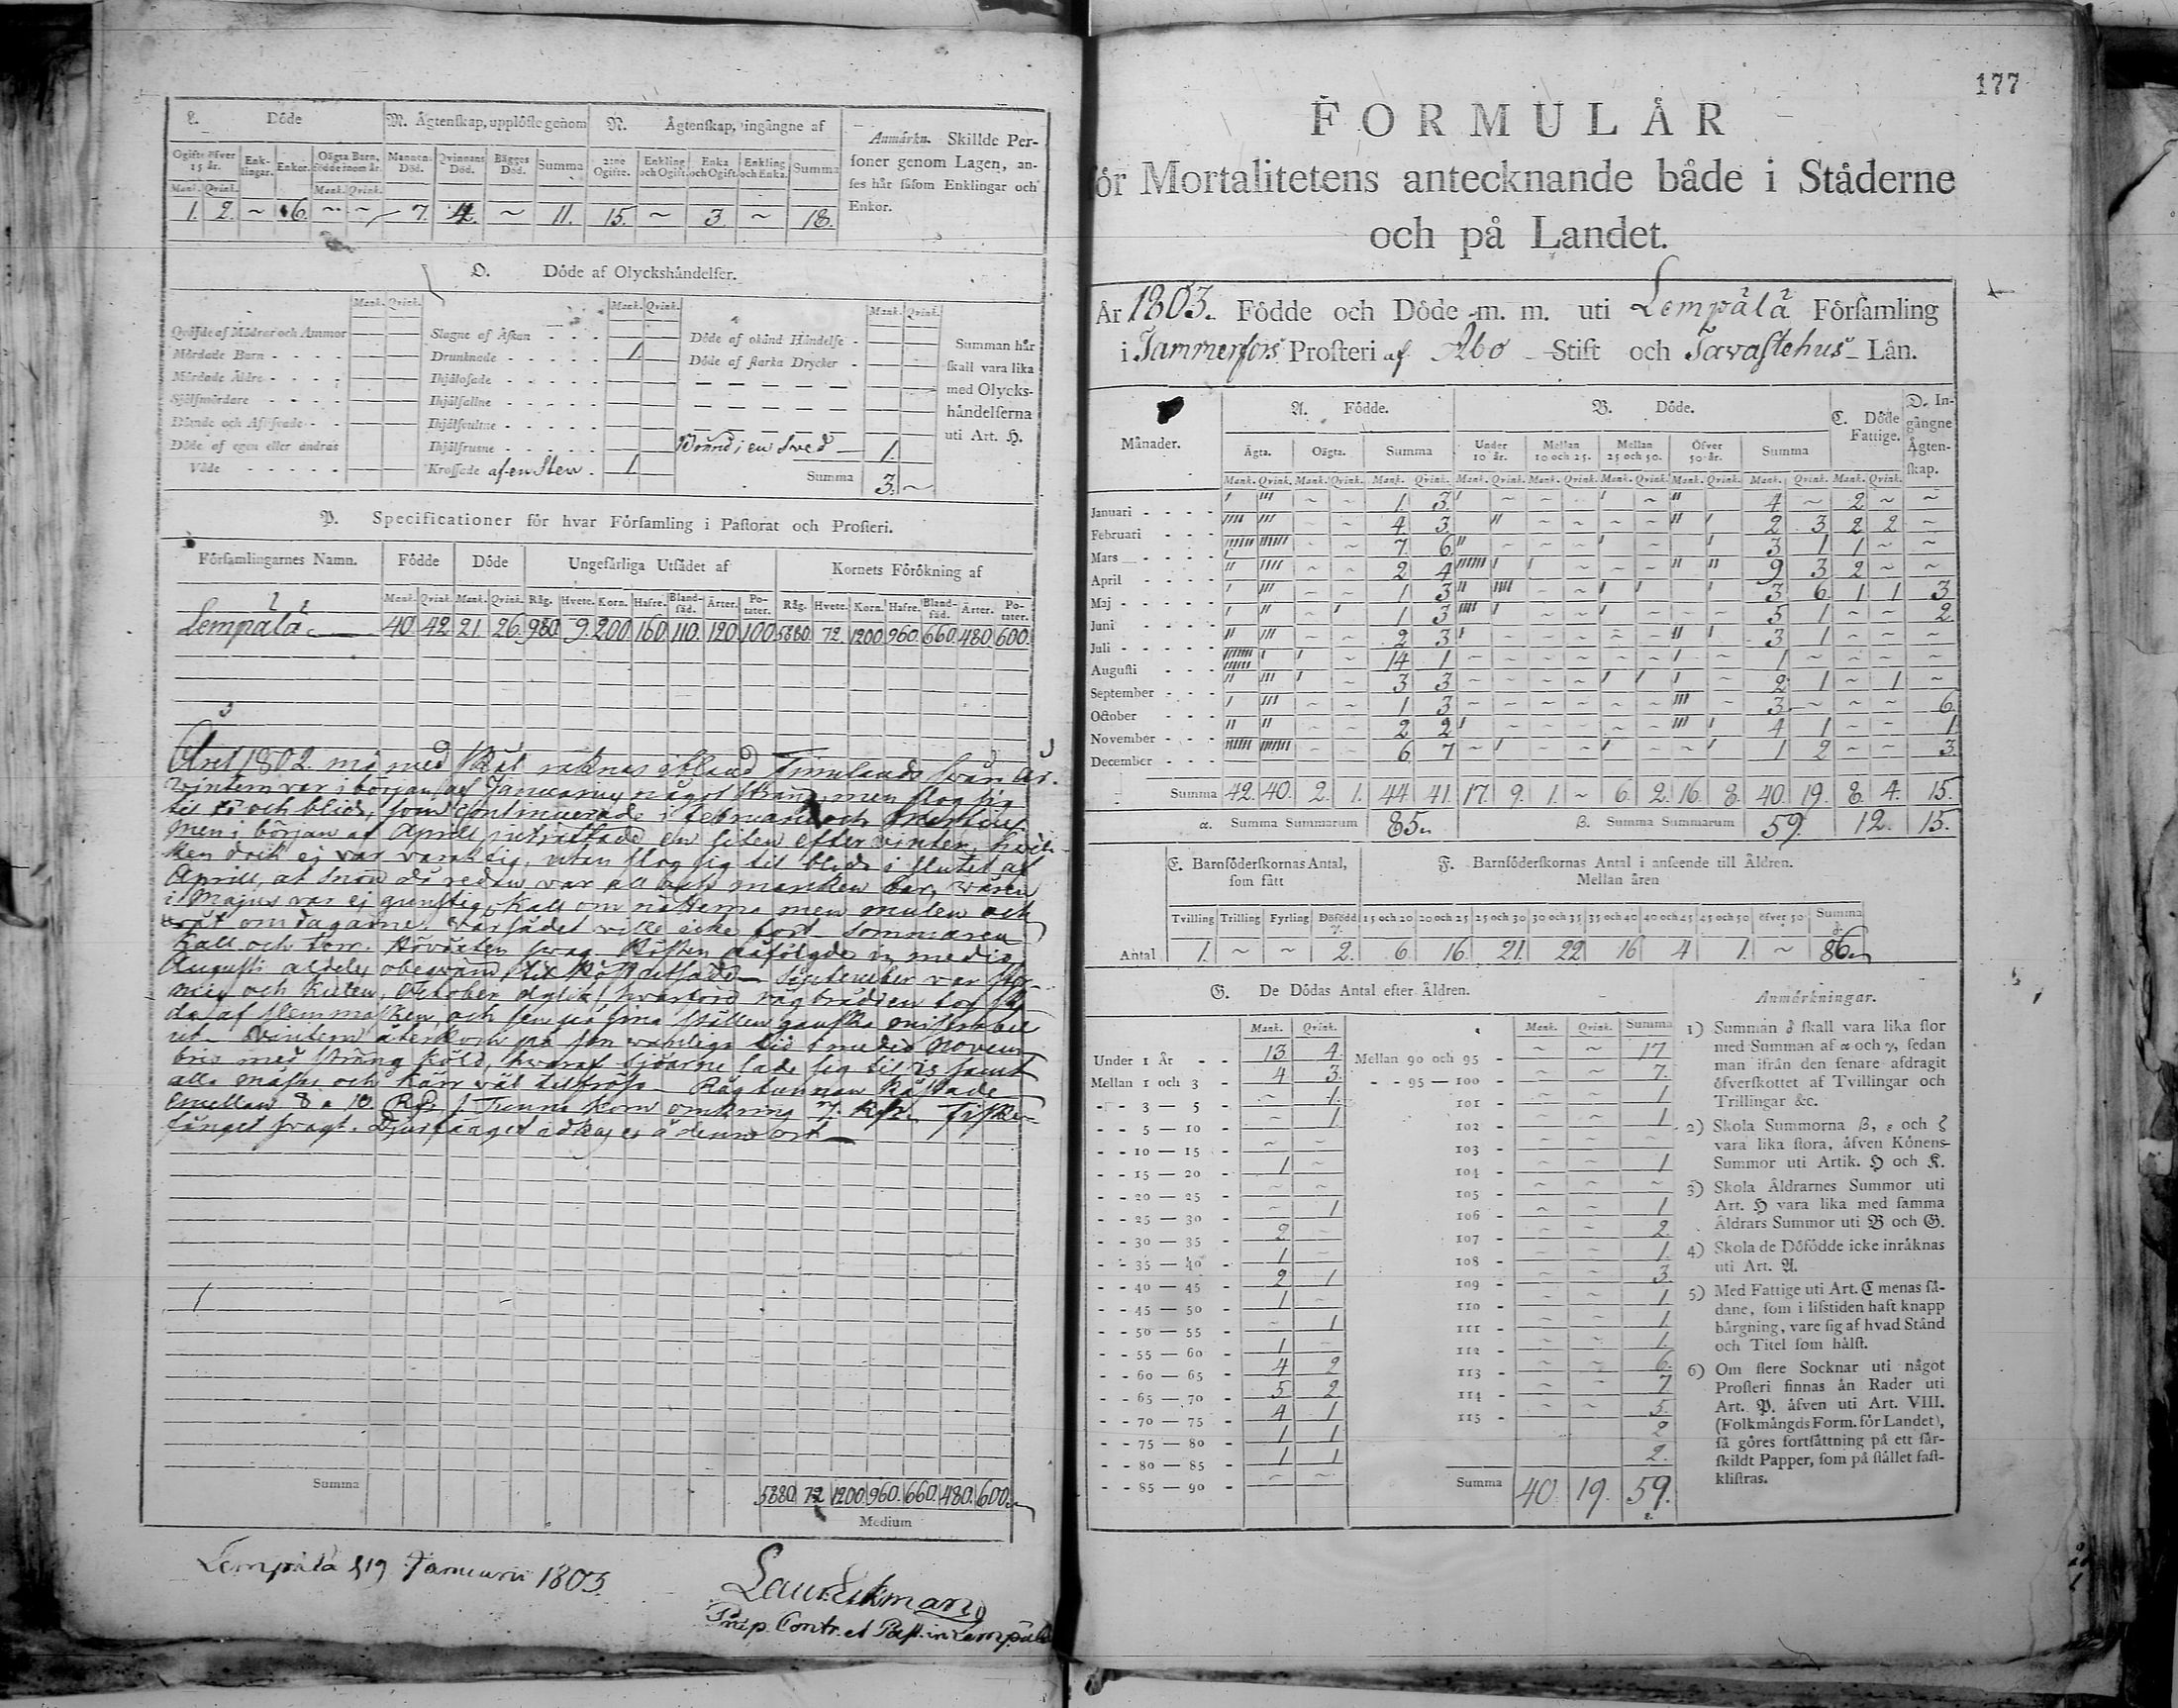 L. Döde
M. Ägtenskap, upplöste genom
N. Ägtenskap, ingångne af
Anmärkn. Skillde Personer genom Lagen, anses här såsom Enklingar och Enkor.
Ogifte öfver 15 år. Enklingar. Enkor. Oägta Barn, födde inom år. Mannens Död. Qvinnans Död. Bägges Död. Summa 2:ne Ogifte. Enkling och Ogift. Enka och Ogift. Enkling och Enka. Summa
Mank. Qvink. Mank. Qvink.
1. 2. ~ 6. ~ ~ 7. 4. ~ 11. 15. ~ 3. ~ 18.
O. Döde af Olyckshändelser.
Mank. Qvink. Mank. Qvink. Mank. Qvink.
Qväfde af Mödrar och Ammor
Mördade Barn - - - -
Mördade Äldre - - - -
Självmördare - - - -
Dömde och Afrättade - -
Döde af egen eller andras
Våde - - - - -
Slagne af Åskan - - -
Drunknade - - - - - 1.
Ihjälfrusne - - - - -
Krossade af en Sten - 1
Döde af okänd Händelse -
Döde af starka Drycker -
i en Sved 1.
Summa 3. ~
Summan här
skall vara lika
med Olycks-
händelserna
uti Art. H.
P. Specificationer för hvar Församling i Pastorat och Prosteri.
Församlingarnes Namn. Födde Döde Ungefärliga Utsädet af Kornets Förökning af
Mank. Qvink. Mank. Qvink. Råg. Hvete. Korn. Hafre. Blandsäd. Ärter. Potater. Råg. Hvete. Korn. Hafre. Blandsäd. Ärter. Potater.
Lempälä 40 42 21 26 980 9. 200 160 110. 120 100 5880 72. 1200 960. 660. 480. 600.
Året 1802 må med skäl räknas ibland Finnlands svåra år.
Wintern var i början af Januarius något sträng, men slog sig
til och blid, som continuerade i Februarius och Martius
Men i början af Aprill inträffade en liten eftervinter, hvil-
ken dock ej var varaktig, utan slog sig til blida i slutet af
Aprill, at snön då redan var all och marken bar, våren
i Majus var ej gunstig, kall om nätterna men mulen och
våt om dagarne. Vårsädet ville icke fort. Sommaren
kall och torr. Hövexten swag. Hösten påföljde in medio
Augusti aldeles obeqväm til Höstarbete September var stor-
mig och kulen, October dylik, hvarföre rågbrådden tog ska-
da af slemmasken, och ser på sina ställen ganska miserabel
ut. Wintern återkom på sin vanliga tid i medio Novem-
bris med sträng köld, hvaraf sjöarne lade sig til is samt
alla måssar och kärr väl tilfröso. Råg tunnan kostade
emellan 8 a 10. Rdr 1 Tunna korn omkring 7. Rdr. Fiske-
fånget svagt. Djurfånget idkas ej å denna ort
Summa 5880. 72 1200. 960. 660. 480. 600.
Medium
Lempälä d 19 Januarii 1803.
Laur. Ekman
Præp. Contr. et Past. in Lempälä
177
FORMULÄR
för Mortalitetens antecknande både i Städerne
och på Landet.
År 1803. Födde och Döde m. m. uti Lempälä Församling
i Tammerfors Prosteri af Åbo Stift och Tavastehus Län.
Månader. A. Födde. B. Döde. C. Döde Fattige. D. Ingångne Ägtenskap.
Ägta. Oägta. Summa Under 10 år. Mellan 10 och 25. Mellan 25 och 50. Öfver 50 år. Summa
Mank. Qvink. Mank. Qvink. Mank. Qvink. Mank. Qvink. Mank. Qvink. Mank. Qvink. Mank. Qvink. Mank. Qvink. Mank. Qvink.
Januari - - - - 1 3. 4 ~ 2 ~ ~
Februari - - - 4. 3. 2 3 2 2 ~
Mars - - - - 7. 6. 3 1 1 ~ ~
April - - - - 2 4 9 3 2 ~ ~
Maj - - - - 1 3 3 6 1 1 3
Juni - - - - 1 3 5 1 ~ ~ 2
Juli - - - - 2 3 3 1 ~ ~ ~
Augusti - - - 14 1 1 ~ ~ ~ ~
September - - - 3 3 2 1 ~ 1 ~
October - - - 1 3 3 ~ ~ ~ 6
November - - - 2 2 4 1 ~ ~ 1
December - - - 6 7 1 2 ~ ~ 3.
Summa 42. 40. 2. 1. 44. 41. 17. 9. 1. ~ 6. 2. 16. 8. 40. 19. 8. 4. 15.
α. Summa Summarum 85. β. Summa Summarum 59. 12. 15.
E. Barnföderskornas Antal, som fått
F. Barnföderskornas Antal i anseende till Åldren.
Mellan åren
Tvilling Trilling Fyrling Dödfödd γ. 15 och 20 20 och 25 25 och 30 30 och 35 35 och 40 40 och 45 45 och 50 öfver 50 Summa δ.
Antal 1. ~ ~ 2. 6. 16. 21. 22 16 4 1. ~ 86.
G. De Dödas Antal efter Åldren.
Mank. Qvink. Mank. Qvink. Summa
Under 1 År - - 13 4. Mellan 90 och 95 - ~ ~ 17
Mellan 1 och 3 - 4 3. - - 95 — 100 - ~ ~ 7.
- - 3 — 5 - ~ 1. 101 - ~ ~ 1
- - 5 — 10 - ~ 1 102 - ~ ~ 1
- - 10 — 15 - ~ ~ 103 - ~ ~ ~
- - 15 — 20 - 1 ~ 104 - ~ ~ 1
- - 20 — 25 - ~ ~ 105 - ~ ~ ~
- - 25 — 30 - ~ 1 106 - ~ ~ 1
- - 30 — 35 - 2 ~ 107 - ~ ~ 2.
- - 35 — 40 - 1 ~ 108 - ~ ~ 1.
- - 40 — 45 - 2 1 109 - ~ ~ 3.
- - 45 — 50 - 1 ~ 110 - ~ ~ 1
- - 50 — 55 - ~ 1 111 - ~ ~ 1
- - 55 — 60 - 1 ~ 112 - ~ ~ 1.
- - 60 — 65 - 4 2 113 - ~ ~ 6.
- - 65 — 70 - 5 2 114 - ~ ~ 7
- - 70 — 75 - 4 1 115 - ~ ~ 5.
- - 75 — 80 - 1 1 2
- - 80 — 85 - 1 1 2.
- - 85 — 90 - ~ ~ Summa 40. 19. 59.
ε.
Anmärkningar.
1) Summan δ skall vara lika stor
med Summan af α och γ, sedan
man ifrån den senare afdragit
öfverskottet af Tvillingar och
Trillingar &c.
2) Skola Summorna β, ε och ζ
vara lika stora, äfven Könens-
Summor uti Artik. H och K.
3) Skola Åldrarnes Summor uti
Art. H vara lika med samma
Åldrars Summor uti B och G.
4) Skola de Dödfödde icke inräknas
uti Art. A.
5) Med Fattige uti Art. C menas så-
dane, som i lifstiden haft knapp
bärgning, vare sig af hvad Stånd
och Titel som hälst.
6) Om flere Socknar uti något
Prosteri finnas än Rader uti
Art. P. äfven uti Art. VIII.
(Folkmängds Form. för Landet),
så göres fortsättning på ett sär-
skildt Papper, som på stället fast-
klistras.